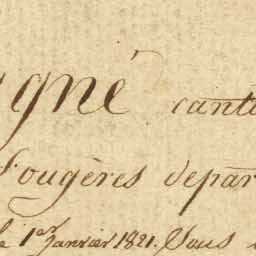 gné canto
Fougères depar
le 1er Janvier 1821. Sous